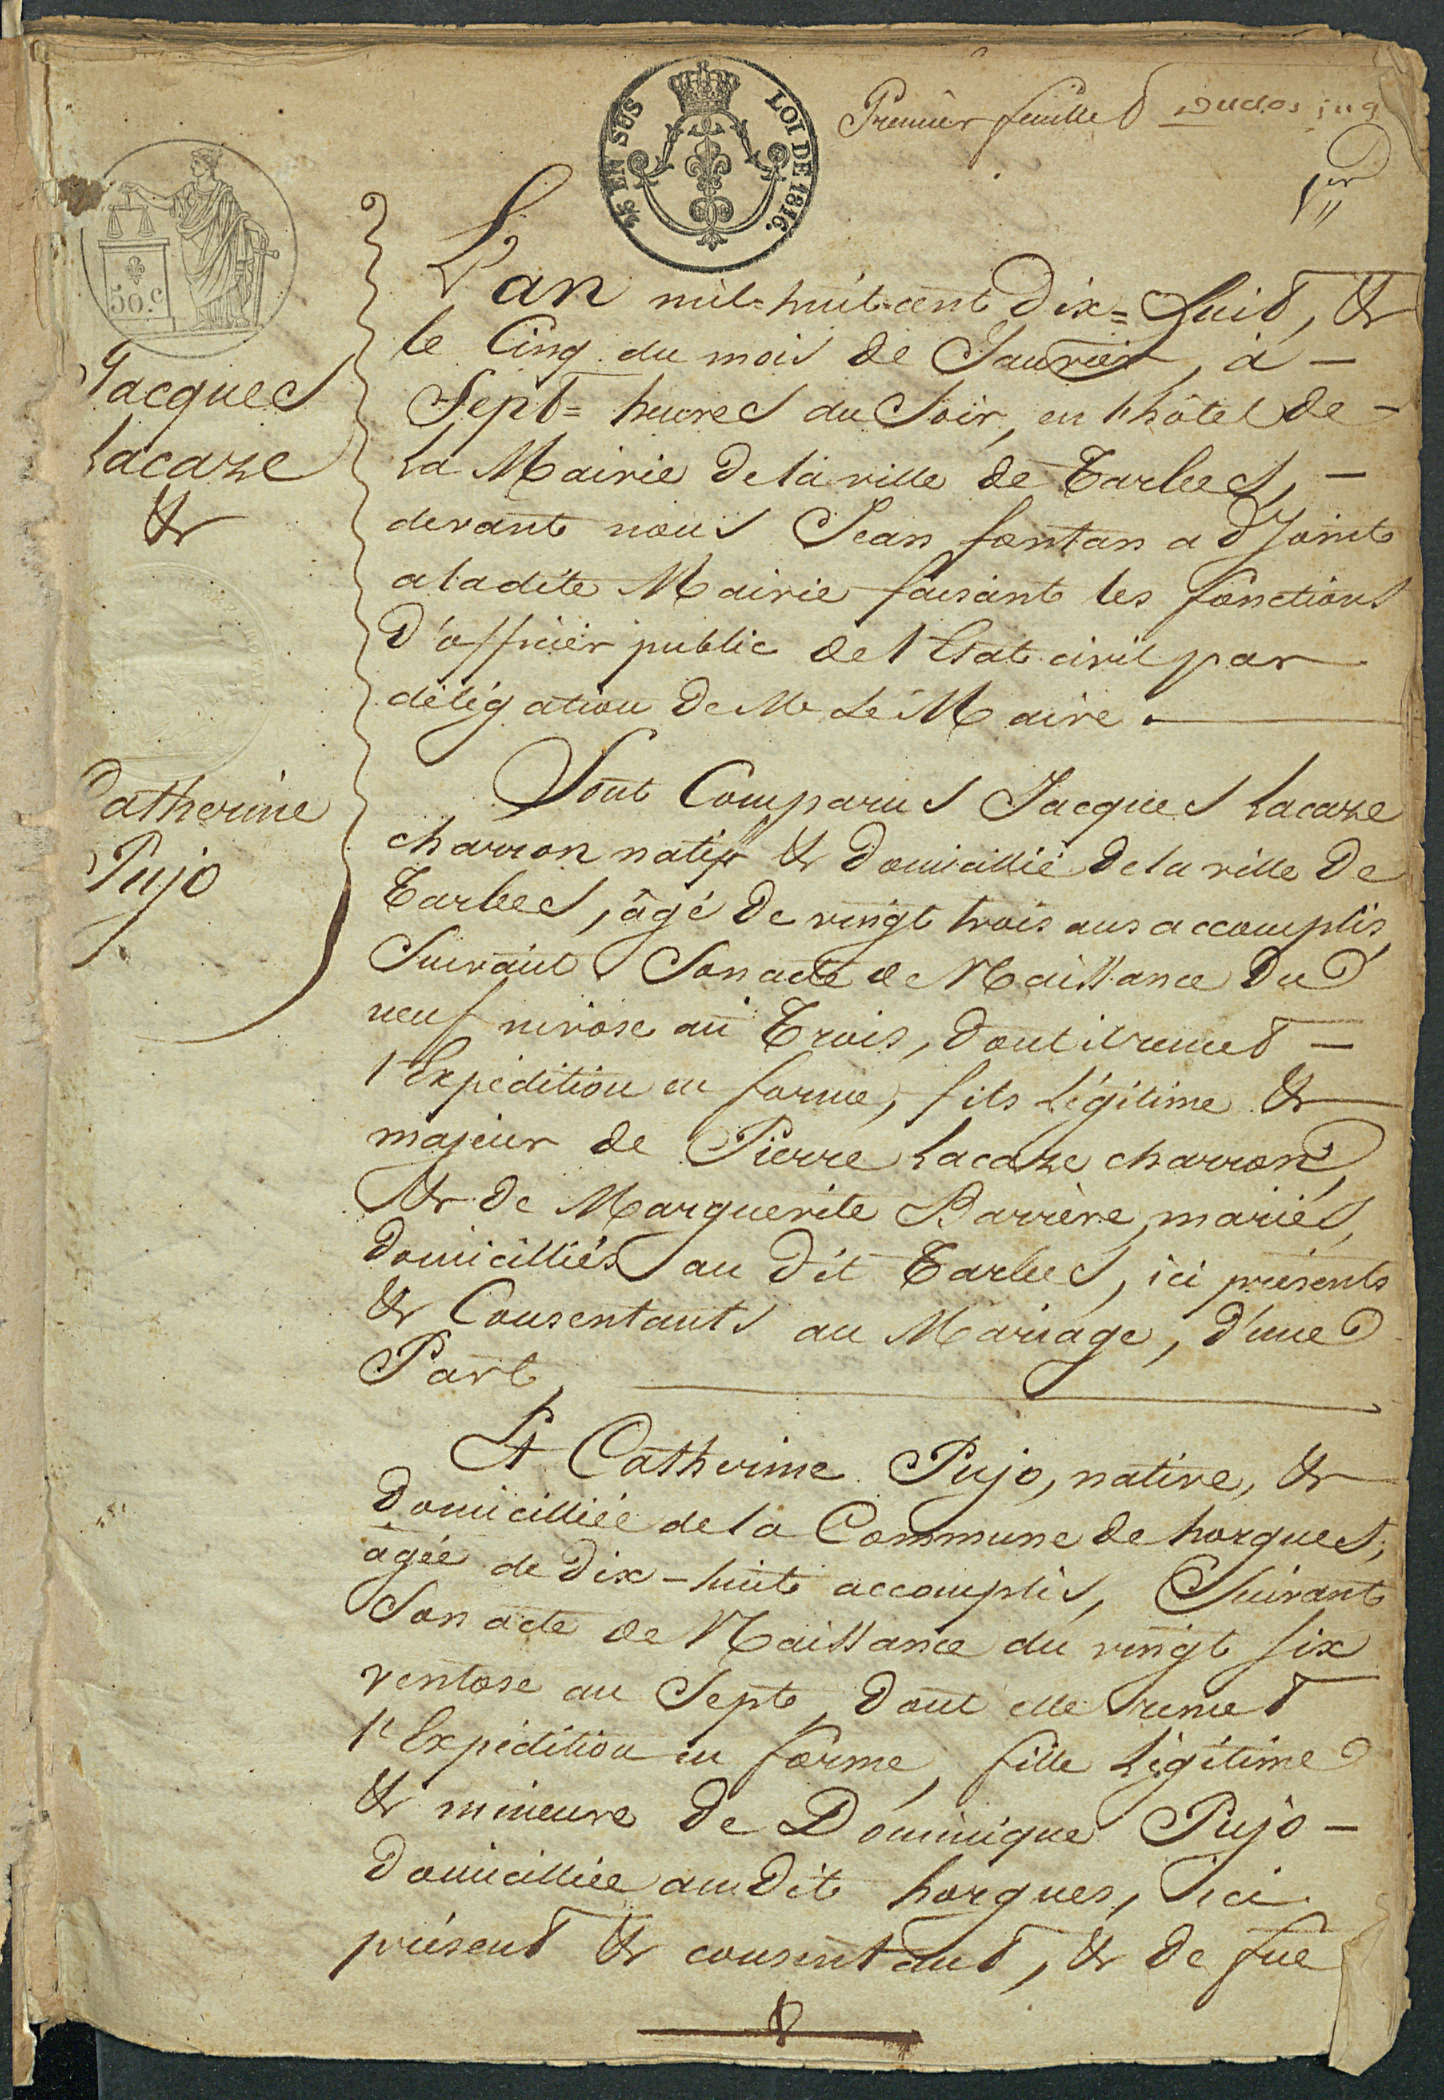 25 EN SUS LOI DE 1816.
Premier feuillet Duclos jug
1er
50.c
Jacques
Lacaze
&
Catherine
Pujo
L'an mil-huit-cent Dix=huit, &
le Cinq du mois de Janvier, à —
Sept= heures du Soir, en l'hôtel de —
La Mairie de la ville de Tarbes, —
devant nous Jean fontan adjoint
a la dite Mairie faisant les fonctions
D'officier public de l'Etat civil par
délégation De Mr Le Maire. —
Sont Comparus Jacques Lacaze
charron natif & domicillié de la ville De
Tarbes, âgé De vingt trois ans accomplis,
Suivant Son acte de Naissance Du
neuf nivose an Trois, dont il remet —
l'Expédition en forme, fils Légitime &
majeur de Pierre Lacaze charron,
& de Marguerite Barrère, mariés,
domicilliés au dit Tarbes, ici présents
& Consentants au Mariage, d'une
Part, —
Et Catherine Pujo, native, &
domicilliée de la Commune de horgues,
âgée de Dix-huit accomplis, Suivant
Son acte de Naissance du vingt six
ventose an Sept, dont elle remet
l'Expédition en forme, fille Légitime
& mineure De Dominique Pujo —
domicilliée au dit horgues, ici
présent & consentant, & de fue